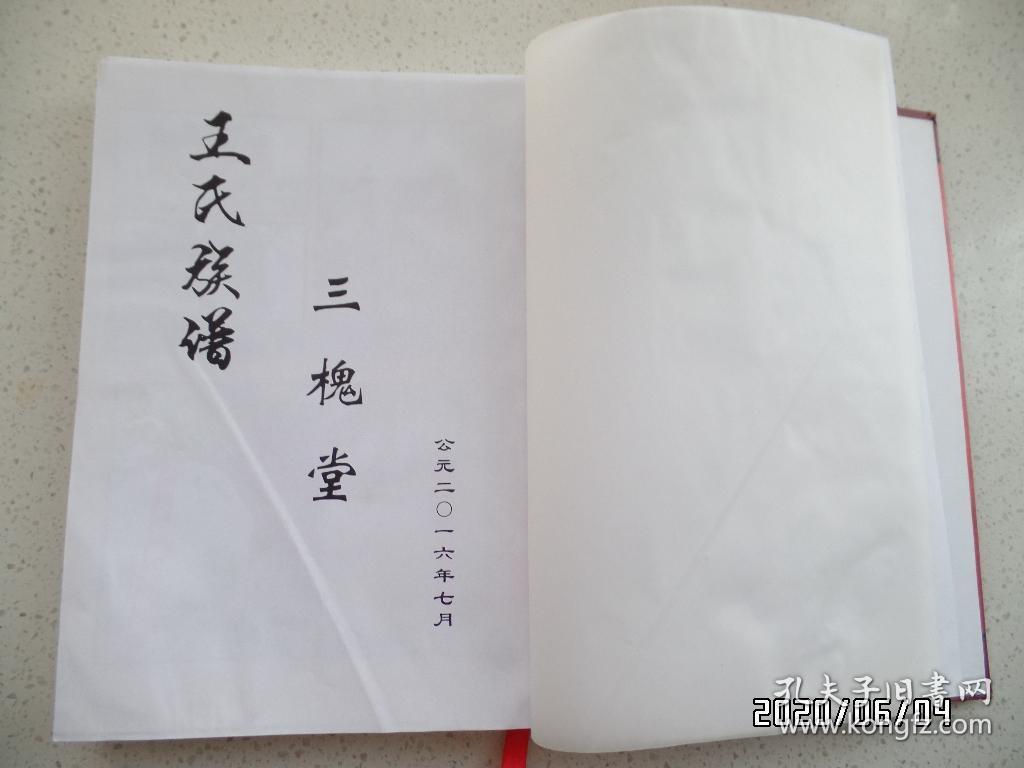 王氏族谱
三槐堂
公元二〇一六年七月
孔夫子旧書网
www.kongfz.com
2020/06/04